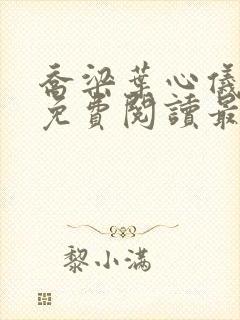 喬梁葉心儀
免費閱讀最
黎小滿